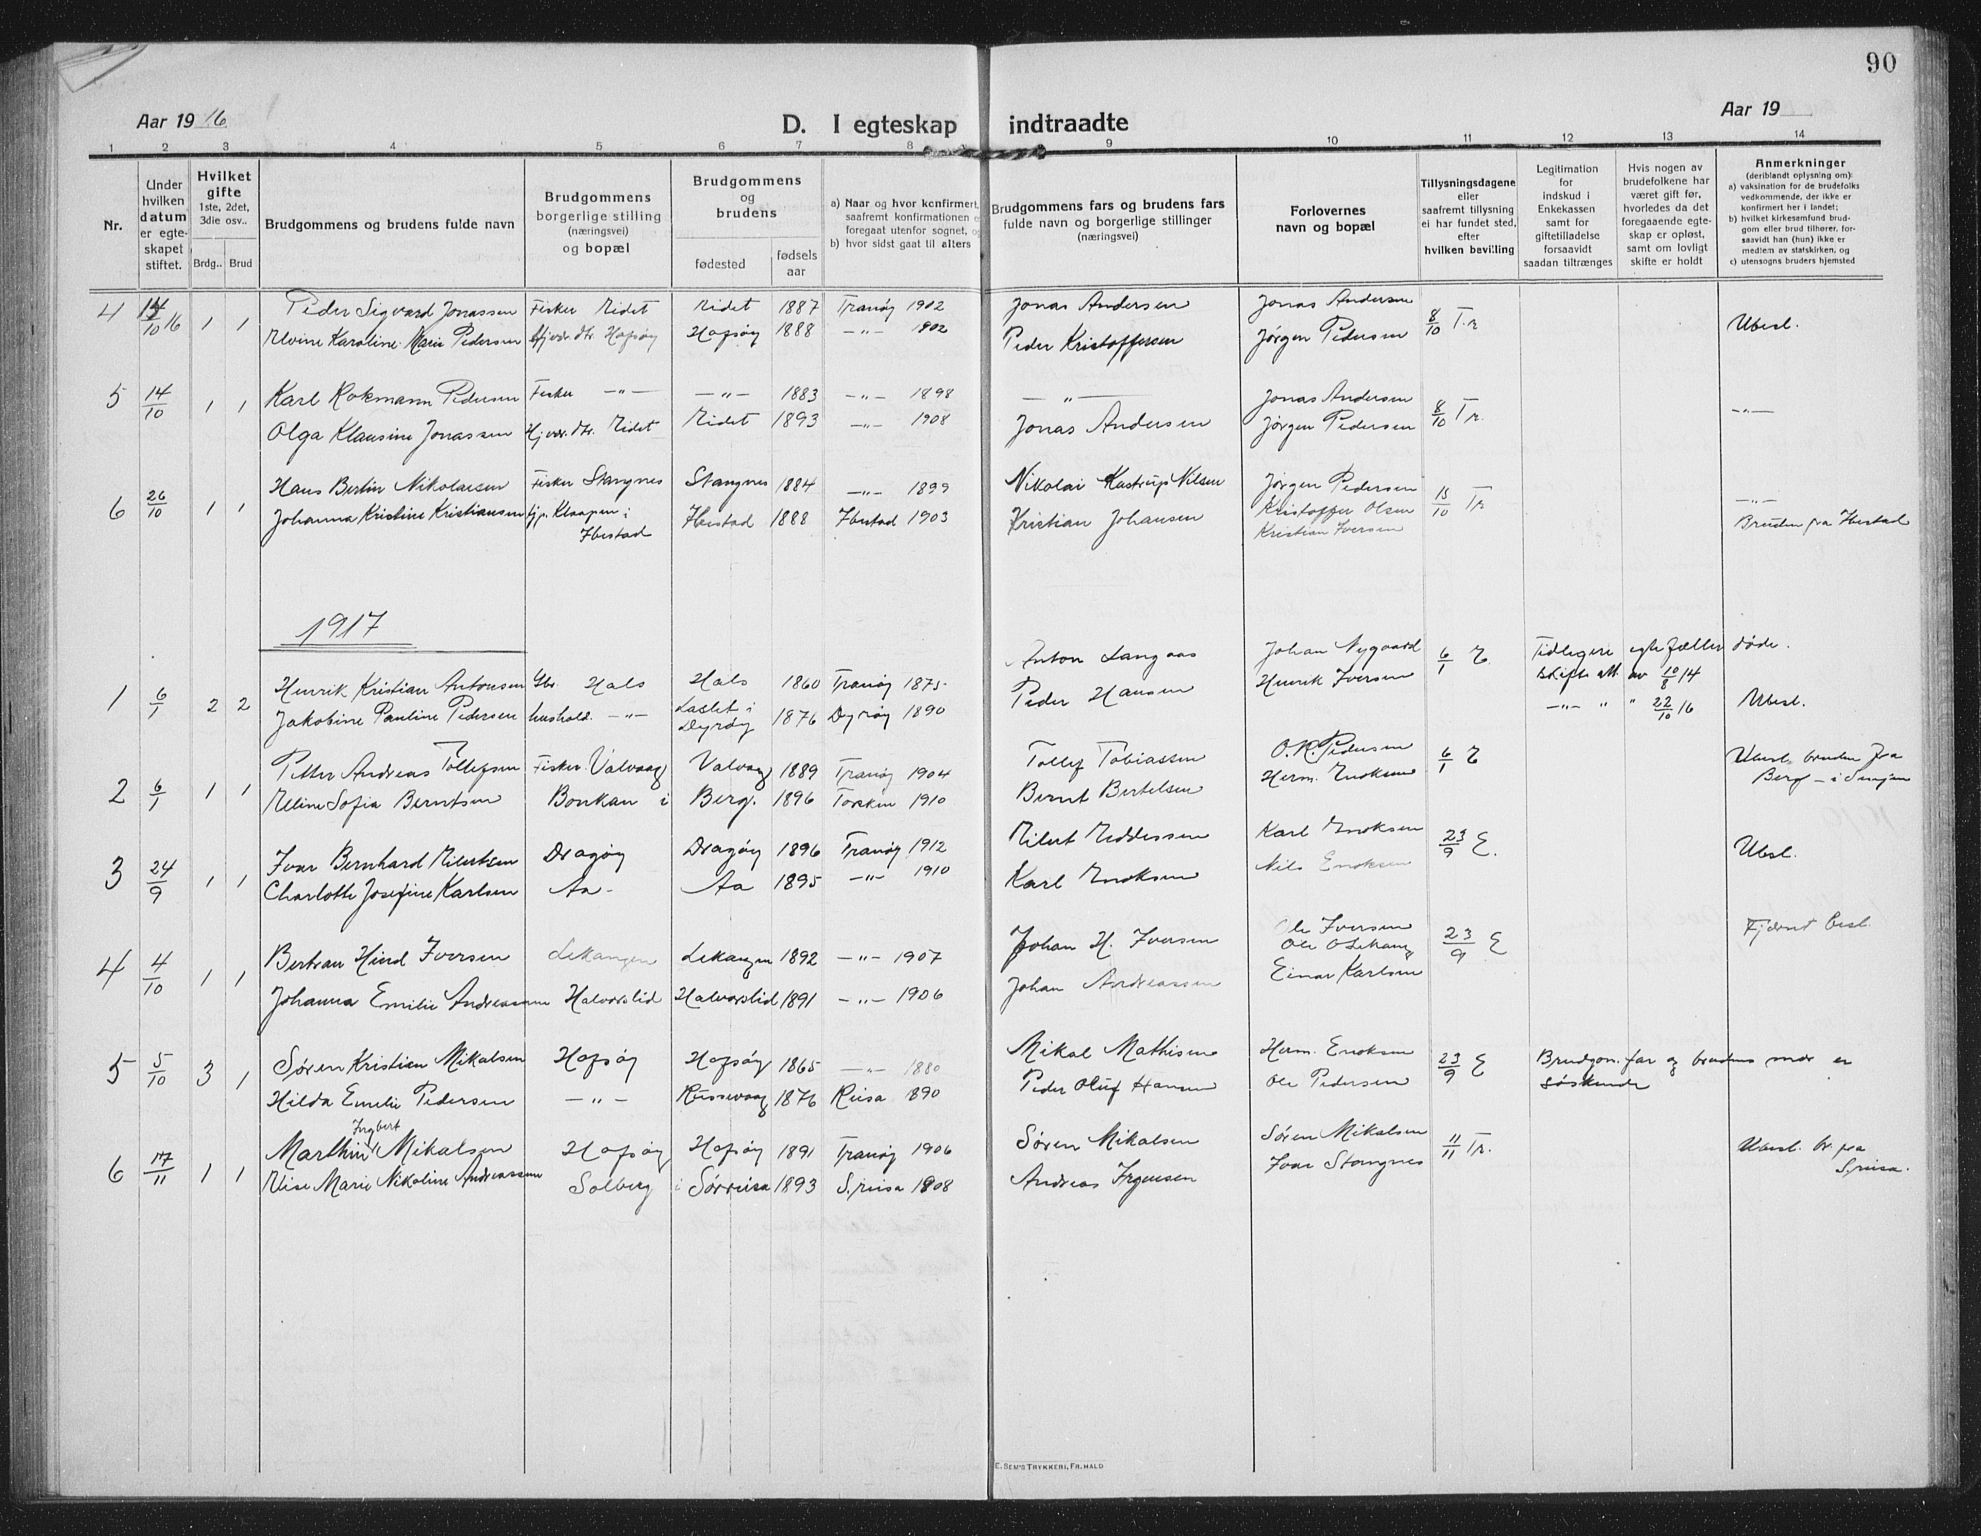 90
Aar 1916
D. I egteskap indtraadte
Aar 19
1 2 3 4 5 6 7 8 9 10 11 12 13 14
Nr.
Under hvilken datum er egteskapet stiftet.
Hvilket gifte 1ste, 2det, 3die osv..
Brdg.. Brud
Brudgommens og brudens fulde navn
Brudgommens borgerlige stilling (næringsvei) og bopæl
Brudgommens og brudens
fødested
fødsels aar
a) Naar og hvor konfirmert,
saafremt konfirmationen
foregaat utenfor sognet,
b) hvor sidst gaat til alters
Brudgommens fars og brudens fars
fulde navn og borgerlige stillinger
(næringsvei)
Forlovernes
navn og bopæl
Tillysningsdagene
eller
saafremt tillysning
ei har fundet sted,
efter
hvilken bevilling
Legitimation
for
indskud i
Enkekassen
samt for
giftetilladelse
forsaavidt
saadan tiltrænges
Hvis nogen av
brudefolkene har
været gift før,
hvorledes da det
foregaaende egte-
skap er opløst,
samt om lovligt
skifte er holdt
Anmerkninger
(deriblandt oplysning om):
a) vaksination for de brudefolks
vedkommende, der ikke er
konfirmert her i landet;
b) hvilket kirkesamfund brud-
gom eller brud tilhører, for-
saavidt han (hun) ikke er
medlem av statskirken, og
c) utensogns bruders hjemsted
4 14/10 16 1 1 Peder Sigvard Jonassen Fisker Eidet Eidet 1887 Tranøy 1902 Jonas Andersen Jonas Andersen 8/10 Tr
Elvine Karoline Marie Pedersen Hofsøy Hofsøy 1888 -"- 1902 Peder Kristoffersen Jørgen Pedersen Ubesl.
5 14/10 1 1 Karl Rokmann Pedersen Fisker -"- -"- 1883 -"- 1898 -"- Jonas Andersen 8/10 Tr. -"-
Olga Klausine Jonassen Hjvr. dtr. Eidet Eidet 1893 -"- 1908 Jonas Andersen Jørgen Pedersen
6 26/10 1 1 Hans Bertin Nikolaisen Fisker Stangnes Stangnes 1884 -"- 1899 Nikolai Kastrup Nilsen Jørgen Pedersen 15/10 Tr -"-
Johanna Kristine Kristiansen tjp. Klaapen i Ibestad Ibestad 1888 Ibestad 1903 Kristian Johansen Kristoffer Olsen Bruden fra Ibestad
Kristian Iversen
1917
1 6/1 2 2 Henrik Kristian Antonsen Gbr. Hals Hals 1860 Tranøy 1875. Anton Langaas Johan Nygaard 6/1 E. Tidligere egtefæller døde.
Jakobine Pauline Pedersen hushold. -"- Laslet i Dyrøy 1876 Dyrøy 1890 Peder Hansen Henrik Iversen Skifte att. av 10/8 14
-"- " " 22/10 16 Ubesl.
2 6/1 1 1 Petter Andreas Tollefsen Fisker Valvaag Valvaag 1889 Tranøy 1904 Tollef Tobiassen O. K. Pedersen 6/1 E Ubesl. bruden fra
Eline Sofia Berntsen Bonkan i Berg. 1896 Torsken 1910 Bernt Bertelsen Herm. Enoksen Berg - i Senjen
3 24/9 1 1 Ivar Bernhard Eilertsen Dragøy Dragøy 1896 Tranøy 1912 Eilert Eddessen Karl Enoksen 23/9 E. Ubesl.
Charlotte Josefine Karlsen Aa- Aa 1895 -"- 1910 Karl Enoksen Nils Enoksen
4 4/10 1 1 Bertran Hind Iversen Lekangen Lekangen 1892 -"- 1907 Johan H. Iversen Ole Iversen 23/9 E Fjernt besl.
Ole O Lekang
Johanna Emilie Andreassen Halvorslid Halvorslid 1891 -"- 1906 Johan Andreassen Einar Karlsen
5 5/10 3 1 Søren Kristian Mikalsen Hofsøy Hofsøy 1865 -"- 1880 Mikal Mathisen Herm. Enoksen 23/9 E Brudgom. far og brudens mor er
Hilda Emelie Pedersen -"- Reissevaag 1876 Reisa 1890 Peder Oluf Hansen Ole Pedersen søskende
6 17/11 1 1 Marthin Ingbert Mikalsen Hofsøy Hofsøy 1891 Tranøy 1906 Søren Mikalsen Søren Mikalsen 11/11 Tr. Ubesl. br. fra
Elise Marie Nikoline Andreassen Solberg i Sørreisa 1893 S.reisa 1908 Andreas Ingensen Ivar Stangnes S.reisa.
E. SEM'S TRYKKERI, FR.HALD